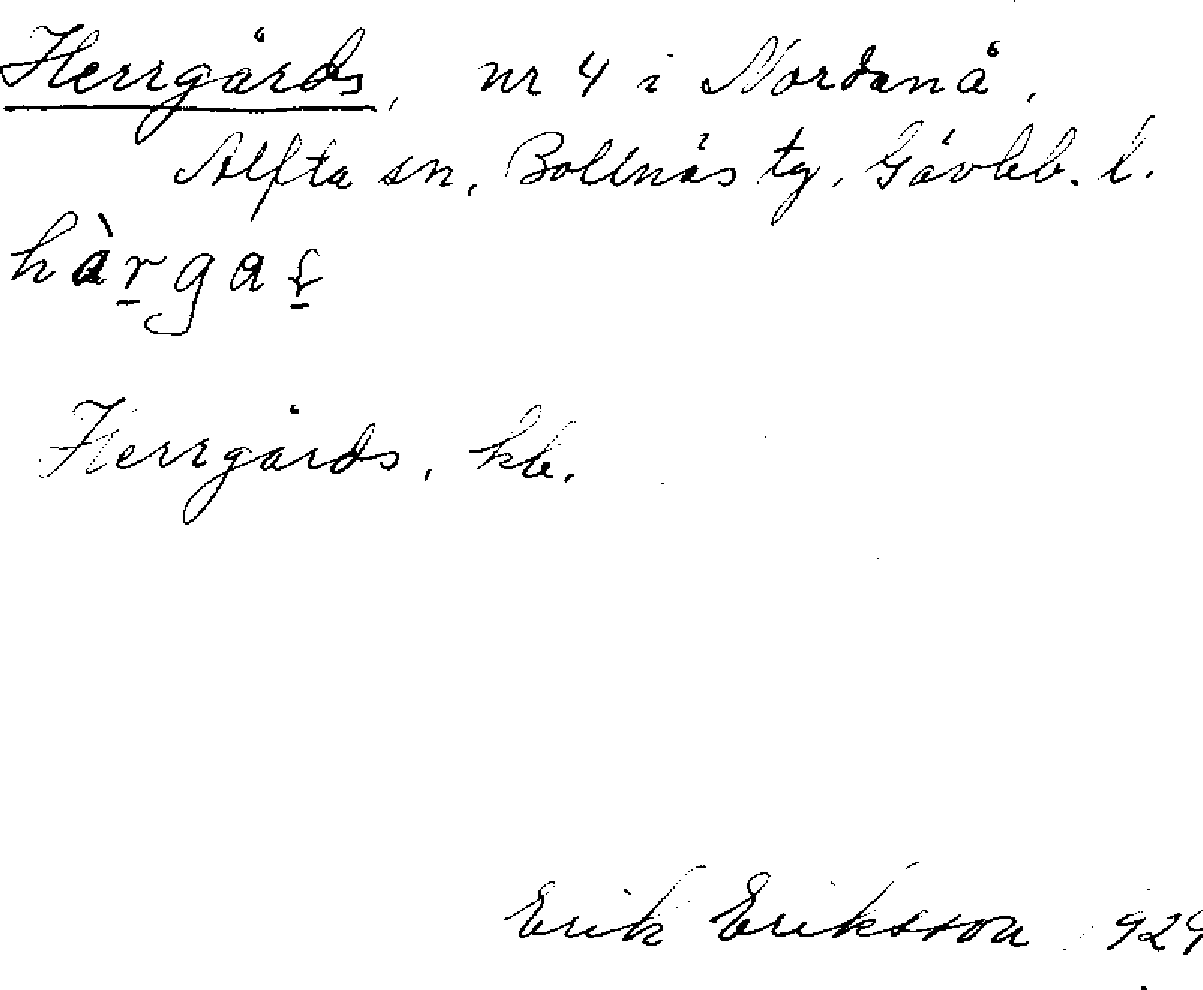 Herrgårds, nr 4 i Nordanå,
Alfta sn, Bollnäs tg, Gävleb. l.
hàr̠gas̠
Herrgårds, kb.
Erik Eriksson 924